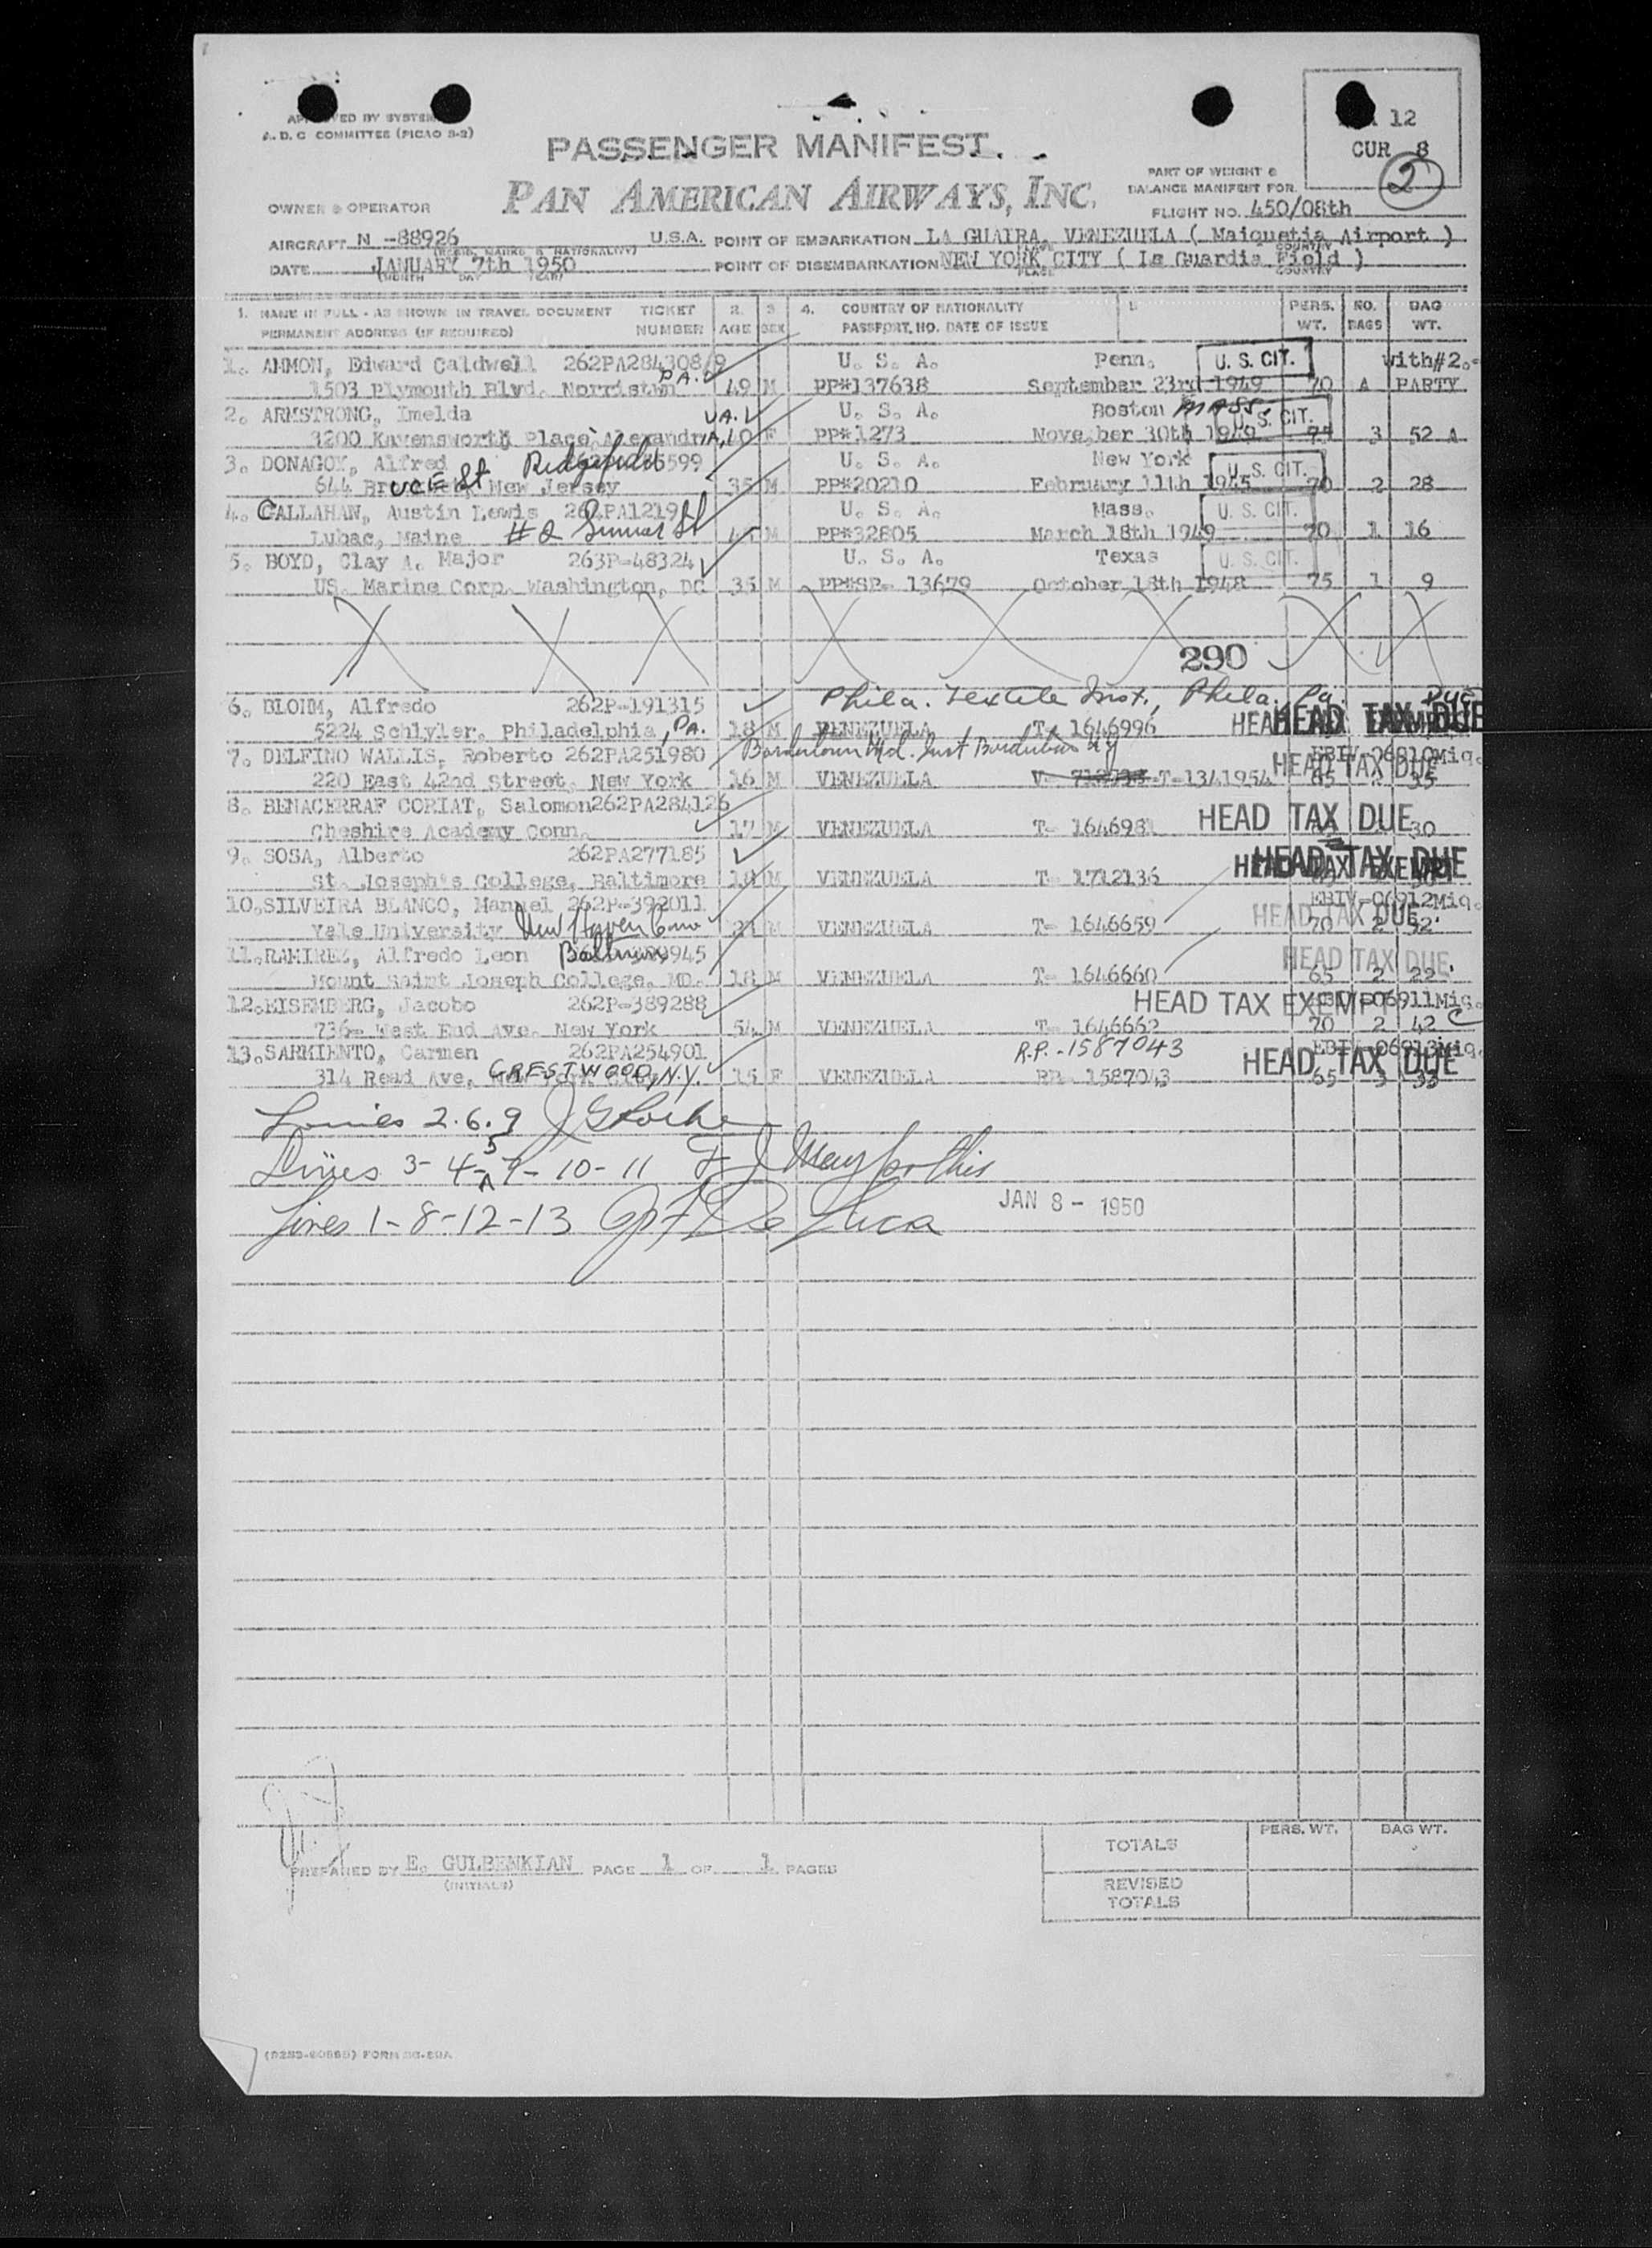 BY SYSTEM
A. D. C COMMITTEE (PICAO S-2)
12
CUR 8
2
PASSENGER MANIFEST
PART OF WEIGHT &
BALANCE MANIFEST FOR
PAN AMERICAN AIRWAYS, INC.
OWNER & OPERATOR
FLIGHT NO. 450/08th
AIRCRAFT N -88926 U.S.A. POINT OF EMBARKATION LA GUAIRA, VENEZUELA ( Maiquetia Airport )
DATE JANUARY 7th 1950 POINT OF DISEMBARKATION NEW YORK CITY ( La Guardia Field )
(MONTH DAY YEAR) PLACE COUNTRY
1. NAME IN FULL - AS SHOWN IN TRAVEL DOCUMENT TICKET 2. 3 4. COUNTRY OF NATIONALITY PERS. NO. BAG
PERMANENT ADDRESS (IF REQUIRED) NUMBER AGE SEX PASSPORT. NO. DATE OF ISSUE WT. BAGS WT.
1. AMMON, Edward Caldwell 262PA284308/9 U. S. A. Penn. U. S. CIT. with#2.-
1503 Plymouth Blvd. Norristwn PA. 49 M PP#137638 September 23rd 1949 70 A PARTY
2. ARMSTRONG, Imelda VA. U. S. A. Boston MASS. U. S. CIT.
3200 Kavensworth Place, Alexandria, F PP#1273 Nove,ber 30th 1949 75 3 52 A
3. DONAGOY, Alfred Ridgefield 5599 U. S. A. New York U. S. CIT.
644 Bruce St New Jersey 35 M PP#20210 February 11th 1945 70 2 28
4. CALLAHAN, Austin Lewis U. S. A. Mass. U. S. CIT.
Lubac, Maine #2 Sumner St M PP#32805 March 18th 1949 70 1 16
5. BOYD, Clay A. Major 263P-48324 U. S. A. Texas U. S. CIT.
US. Marine Corp. Washington, DC 35 M PP#SP- 13679 October 18th 1948 75 1 9
290
6. BLOHM, Alfredo 262P-191315 Phila. Textile Inst., Phila. Pa.
5224 Schlyler. Philadelphia, PA. 18 M VENEZUELA T- 1646996 HEAD TAX DUE
7. DELFINO WALLIS, Roberto 262PA251980 EBIV-06810Miq.
220 East 42nd Street, New York 16 M VENEZUELA T-1341954 HEAD TAX DUE 65 35
8. BENACERRAF CORIAT, Salomon262PA284126
Cheshire Academy Conn. 17 M VENEZUELA T- 164698 HEAD TAX DUE 30
9. SOSA, Alberto 262PA277185 HEAD TAX DUE
St. Joseph's College, Baltimore 18 M VENEZUELA T- 1712136
10.SILVEIRA BLANCO, Manuel 262P-392011 EBIV-06912Miq.
Yale University New Haven Conn VENEZUELA T- 1646659 HEAD TAX DUE 70 2 52
11.RAMIREZ, Alfredo Leon 945 HEAD TAX DUE
Mount Saint Joseph College. MD. 18 M VENEZUELA T- 1646660 65 2 22
12.EISEMBERG, Jacobo 262P-389288 HEAD TAX EXEMPT 06911Miq.
736- West End Ave. New York 54 M VENEZUELA T- 1646662 70 2 42 C
13.SARMIENTO, Carmen 262PA254901 R.P.-1587043 EBIV-06913Miq.
314 Read Ave, CRESTWOOD, N.Y. 15 F VENEZUELA RP- 1587043 HEAD TAX DUE 65 3 33
Lines 2.6.9
Lines 3-4-5-7-10-11
Lines 1-8-12-13 De Luca
JAN 8 - 1950
PERS. WT. BAG WT.
TOTALS
PREPARED BY E. GULBENKIAN PAGE 1 OF 1 PAGES
(INITIALS)
REVISED
TOTALS